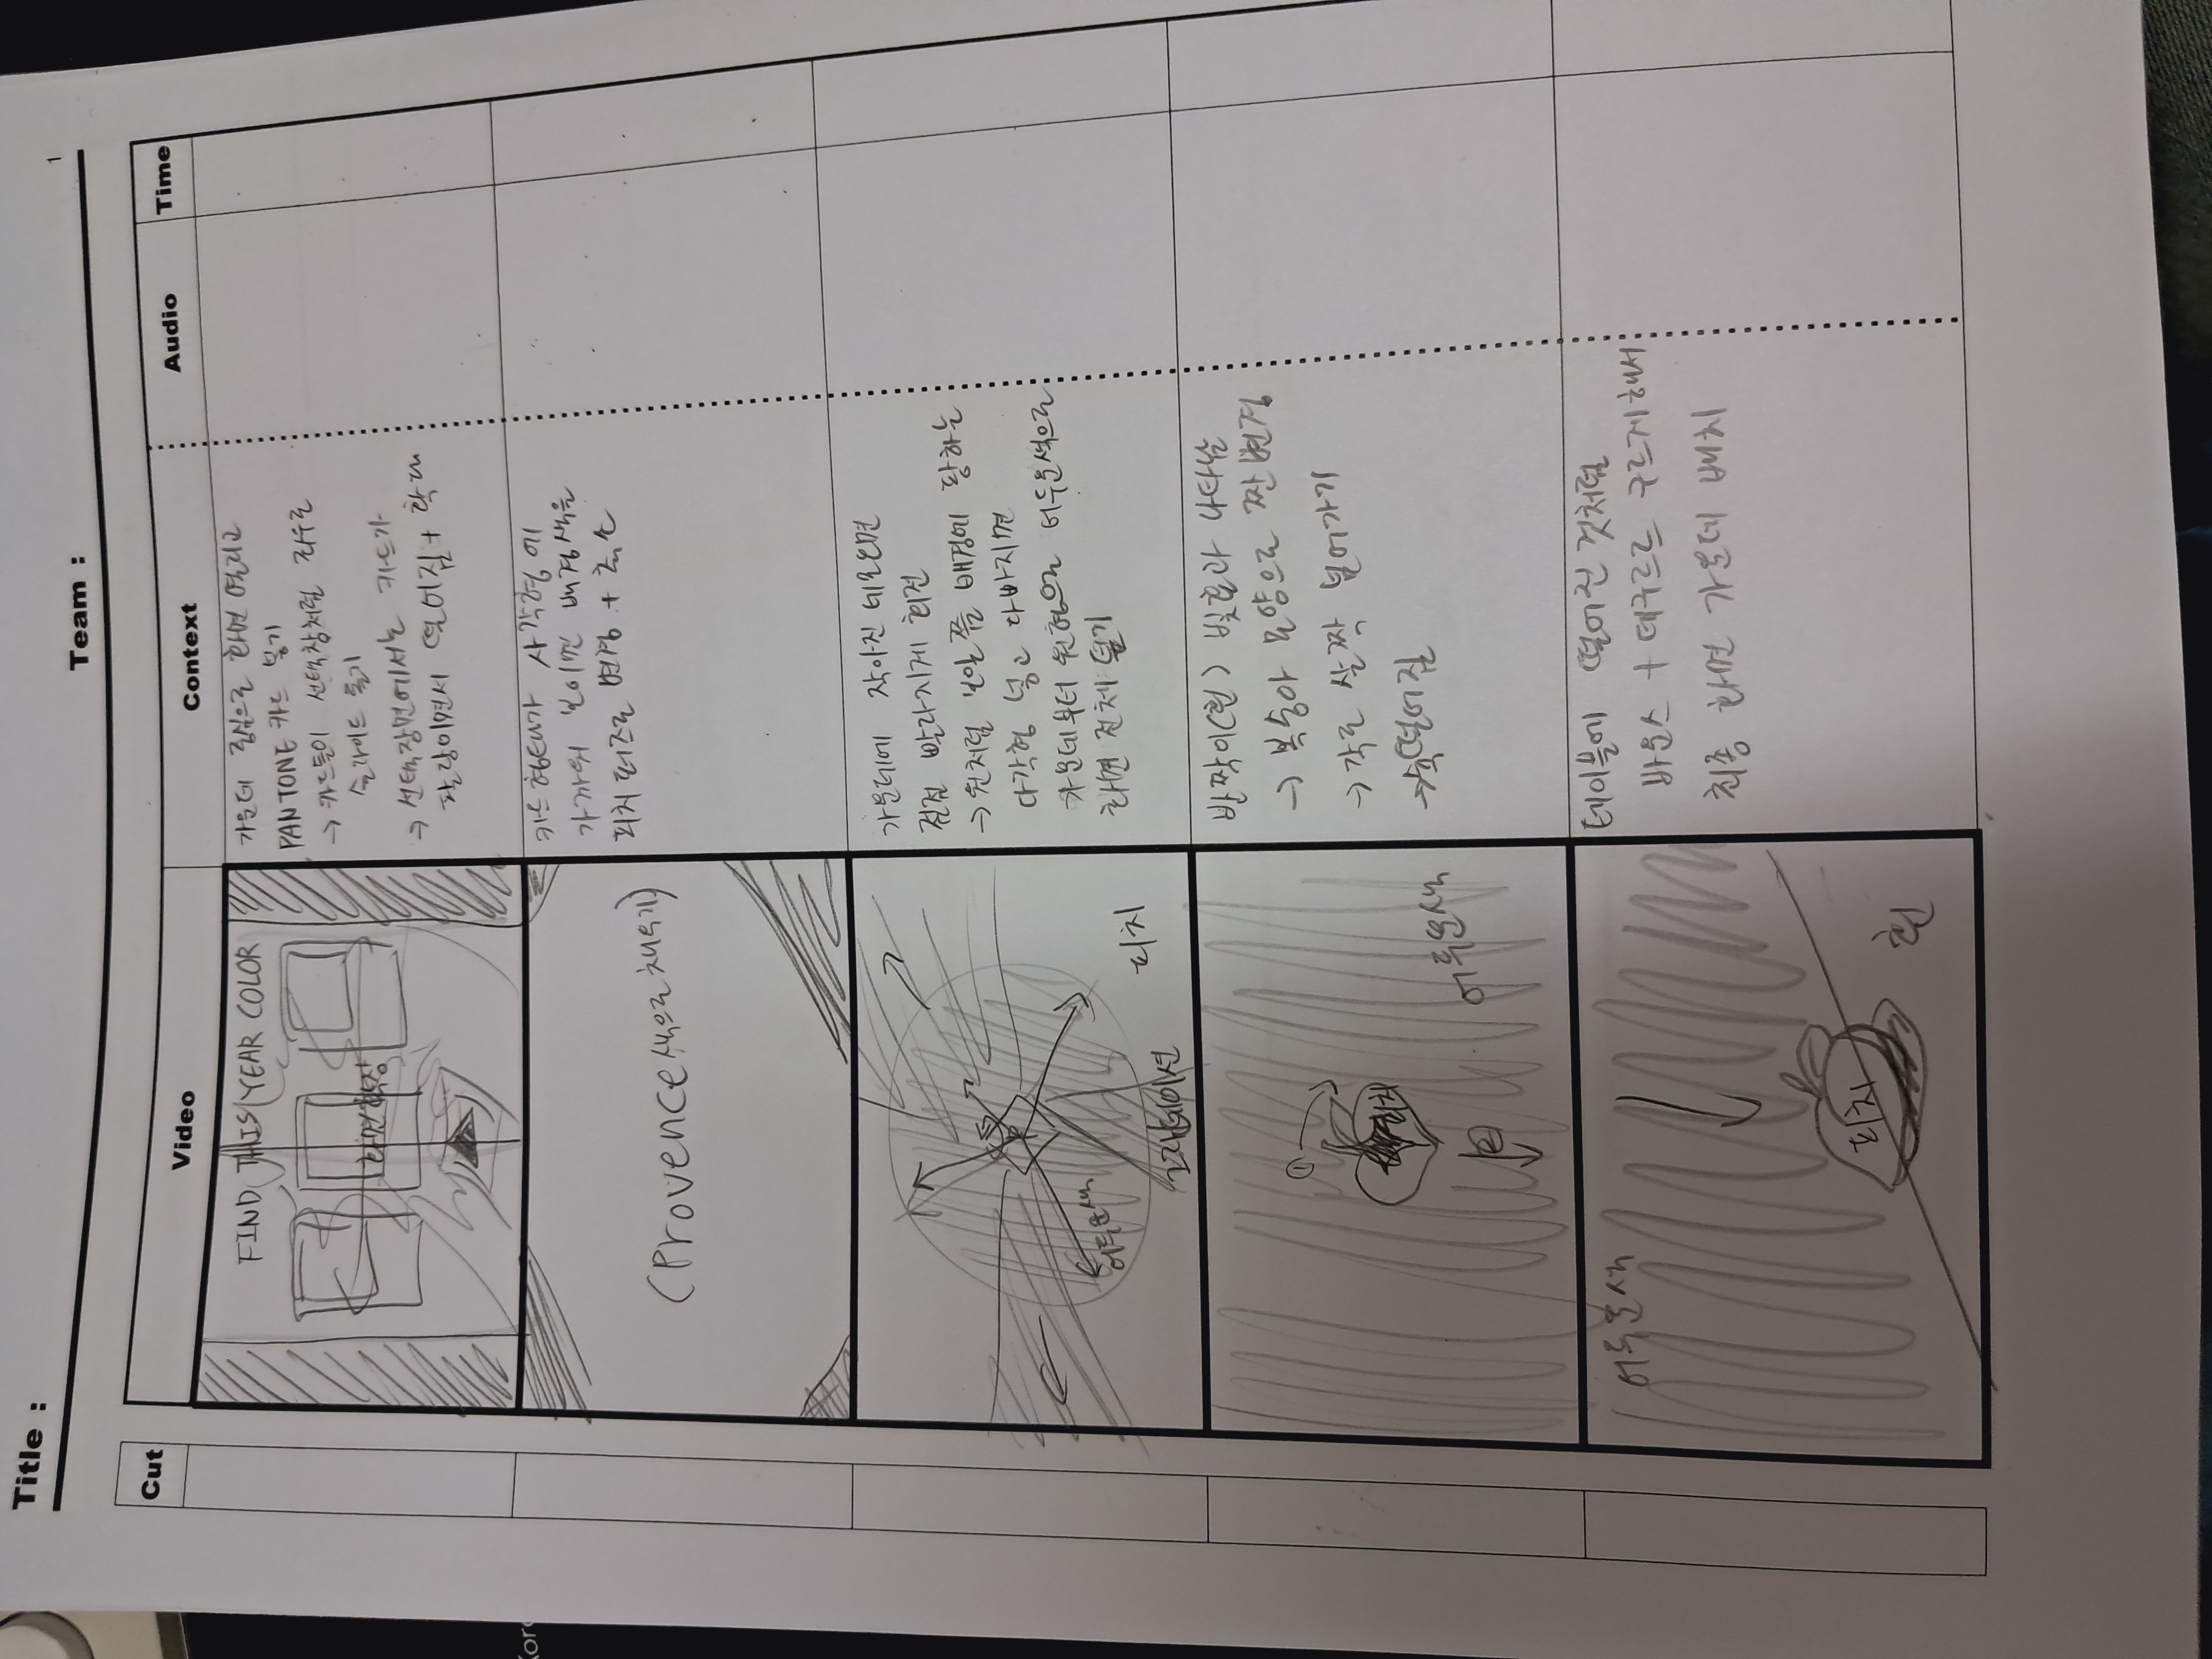 Title :
Team :
1
Cut
Video
Context
Audio
Time
FIND THIS YEAR COLOR
화면확장
가운데 중심으로 화면 열리고
PANTONE 카드 놓기
→ 카드들이 선택창처럼 좌우로
슬라이드 돌기
→ 선택장면에서는 카드가
팔랑이면서 떨어짐 + 확대
(Provence색으로 채우기)
카드형태가 사각형에
가까워 보이면 배경색을
피치퍼즈로 변경 + 축소
어두운색
그라데이션
피치
가운데에 작아진 네모화면
점점 빨라지게 회전
→ 원처럼 보일 쯤 배경에 팡하는
다각형 넣고 다빠지면
가운데부터 원형으로 어두운색으로
화면 전체 덮기
①
피치
②
어두운색
반짝이(흰) 빛효과 나타남
→ 복숭아 모양으로 짠변경
→ 각도 살짝 넘어가기
→ 슉 떨어짐
어두운색
피치
흰
테이블에 떨어진 것처럼
바운스 + 데구르르 구르게해서
최종 화면 가운데 배치